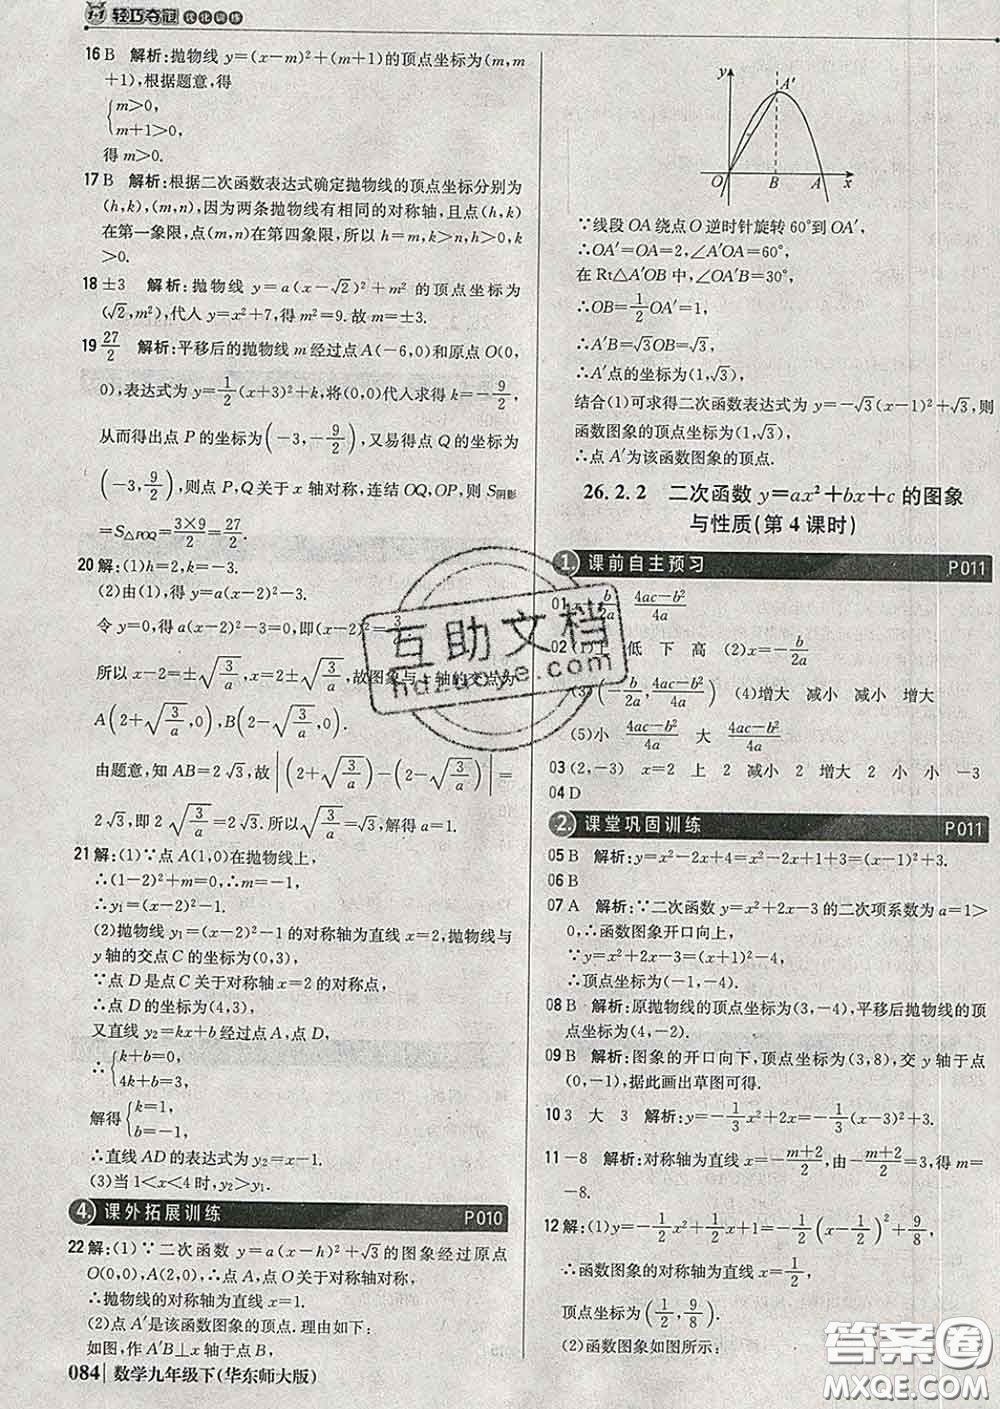 1+1 轻巧夺冠 优化训练
16 B 解析:抛物线 y=(x-m)²+(m+1)的顶点坐标为(m,m
+1),根据题意,得
{m>0,
m+1>0,
得 m>0.
17 B 解析:根据二次函数表达式确定抛物线的顶点坐标分别为
(h,k),(m,n),因为两条抛物线有相同的对称轴,且点(h,k)
在第一象限,点(m,n)在第四象限,所以 h=m,k>n,h>0,k
>0.
18 ±3 解析:抛物线 y=a(x-√2)²+m² 的顶点坐标为
(√2,m²),代人 y=x²+7,得 m²=9.故 m=±3.
19 27/2 解析:平移后的抛物线 m 经过点 A(-6,0)和原点 O(0,
0),表达式为 y=1/2(x+3)²+k,将(0,0)代人求得 k=-9/2,
从而得出点 P 的坐标为(-3,-9/2),又易得点 Q 的坐标为
(-3,9/2),则点 P,Q 关于 x 轴对称,连结 OQ,OP,则 S阴影
=S△POQ=3×9/2=27/2.
20 解:(1)h=2,k=-3.
(2)由(1),得 y=a(x-2)²-3.
令 y=0,得 a(x-2)²-3=0,即(x-2)²=3/a
所以 x-2=±√|3/a|,x=2±√|3/a|,故图象与 x 轴的交点为
A(2+√|3/a|,0),B(2-√|3/a|,0).
由题意,知 AB=2√3,故|(2+√|3/a|)-(2-√|3/a|)|=
2√3,即 2√|3/a|=2√3.所以√|3/a|=√3,解得 a=1.
21 解:(1)∵点 A(1,0)在抛物线上,
∴(1-2)²+m=0,∴m=-1.
∴y₁=(x-2)²-1.
(2)抛物线 y₁=(x-2)²-1 的对称轴为直线 x=2,抛物线与
y 轴的交点 C 的坐标为(0,3),
∵点 D 是点 C 关于对称轴 x=2 的对称点,
∴点 D 的坐标为(4,3),
又直线 y₂=kx+b 经过点 A,点 D,
∴{k+b=0,
4k+b=3,
解得{k=1,
b=-1,
∴直线 AD 的表达式为 y₂=x-1.
(3)当 1<x<4 时,y₂>y₁.
4. 课外拓展训练 P010
22 解:(1)∵二次函数 y=a(x-h)²+√3的图象经过原点
O(0,0),A(2,0),∴点 A,点 O 关于对称轴对称,
∴抛物线的对称轴为直线 x=1.
(2)点 A′是该函数图象的顶点.理由如下:
如图,作 A′B⊥x 轴于点 B,
084 数学九年级下(华东师大版)
y A′
O B A x
∵线段 OA 绕点 O 逆时针旋转 60°到 OA′,
∴OA′=OA=2,∠A′OA=60°,
在 Rt△A′OB 中,∠OA′B=30°,
∴OB=1/2OA′=1,
∴A′B=√3OB=√3,
∴A′点的坐标为(1,√3),
结合(1)可求得二次函数表达式为 y=-√3(x-1)²+√3,则
函数图象的顶点坐标为(1,√3),
∴点 A′为该函数图象的顶点.
26.2.2 二次函数 y=ax²+bx+c 的图象
与性质(第 4 课时)
1. 课前自主预习 P011
01 -b/2a 4ac-b²/4a
02 (1)上 低 下 高 (2)x=-b/2a
(3)(-b/2a,4ac-b²/4a) (4)增大 减小 减小 增大
(5)小 4ac-b²/4a 大 4ac-b²/4a
03 (2,-3) x=2 上 2 减小 2 增大 2 小 小 -3
04 D
2. 课堂巩固训练 P011
05 B 解析:y=x²-2x+4=x²-2x+1+3=(x-1)²+3.
06 B
07 A 解析:∵二次函数 y=x²+2x-3 的二次项系数为 a=1>
0,∴函数图象开口向上,
∵y=x²+2x-3=(x+1)²-4,
∴顶点坐标为(-1,-4).
08 B 解析:原抛物线的顶点坐标为(3,-4),平移后抛物线的顶
点坐标为(4,-2).
09 B 解析:图象的开口向下,顶点坐标为(3,8),交 y 轴于点
(0,-1),据此画出草图可得.
10 3 大 3 解析:y=-1/3x²+2x=-1/3(x-3)²+3.
11 -8 解析:对称轴为直线 x=-m+2/2,由-m+2/2=3,得 m=
-8.
12 解:(1)y=-1/2x²+1/2x+1=-1/2(x-1/2)²+9/8,
∴函数图象的对称轴为直线 x=1/2,
顶点坐标为(1/2,9/8).
(2)函数图象如图所示:
互助文档
hdzuoye.com
答案圈
MXQE.COM